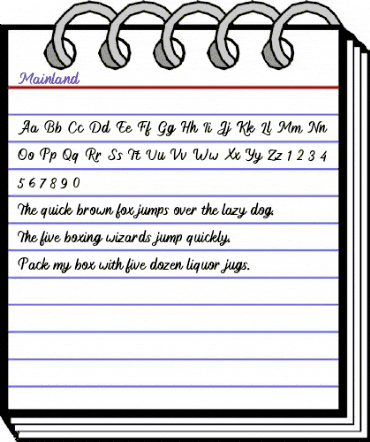 Mainland
Aa Bb Cc Dd Ee Ff Gg Hh Ii Jj Kk Ll Mm Nn
Oo Pp Qq Rr Ss Tt Uu Vv Ww Xx Yy Zz 1 2 3 4
5 6 7 8 9 0
The quick brown fox jumps over the lazy dog.
The five boxing wizards jump quickly.
Pack my box with five dozen liquor jugs.